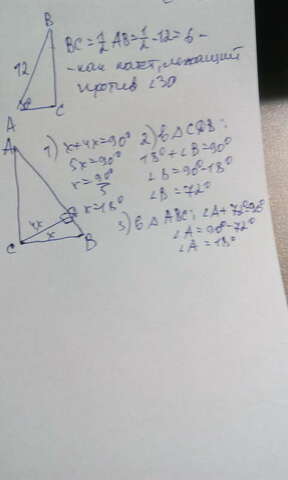 B
BC = 1/2 AB = 1/2 · 12 = 6 -
12
- как катет, лежащий
против ∠30
A C
A
1) x+4x=90°
5x=90°
x=90°/5
x=18°
2) в △ CDB:
18°+∠B=90°
∠B=90°-18°
∠B=72°
4x
x
C B
3) в △ ABC: ∠A+72°=90°
∠A=90°-72°
∠A=18°